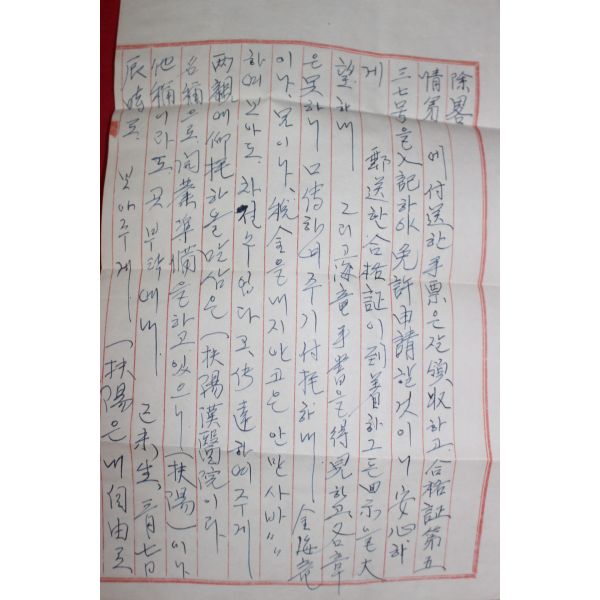 除畧
情弟에 付送한 手票은 잘 領取하고 合格証第五
三七号을 入記하야 免許申請할것이니 安心하
게 郵送한 合格証이 到着하그든 大
望하내 그리고 海竜手書을 得見하고 名章
은 못하니 口傳하여 주기 付托하내 金海竜
이나, 兄이나, 税金을 내지 안고은 안만 사바〃
하여 보아도 차질수 업다고, 傳達하여주게
両親에 仰托하을 말삼은 (扶陽漢醫院이라
名稱으로 開業準備을 하고 있으니 (扶陽)이나
他稱이라도 곳 부탁에내. 己未生, 三月七日
辰時로 보아주게 (扶陽은 내 自由로